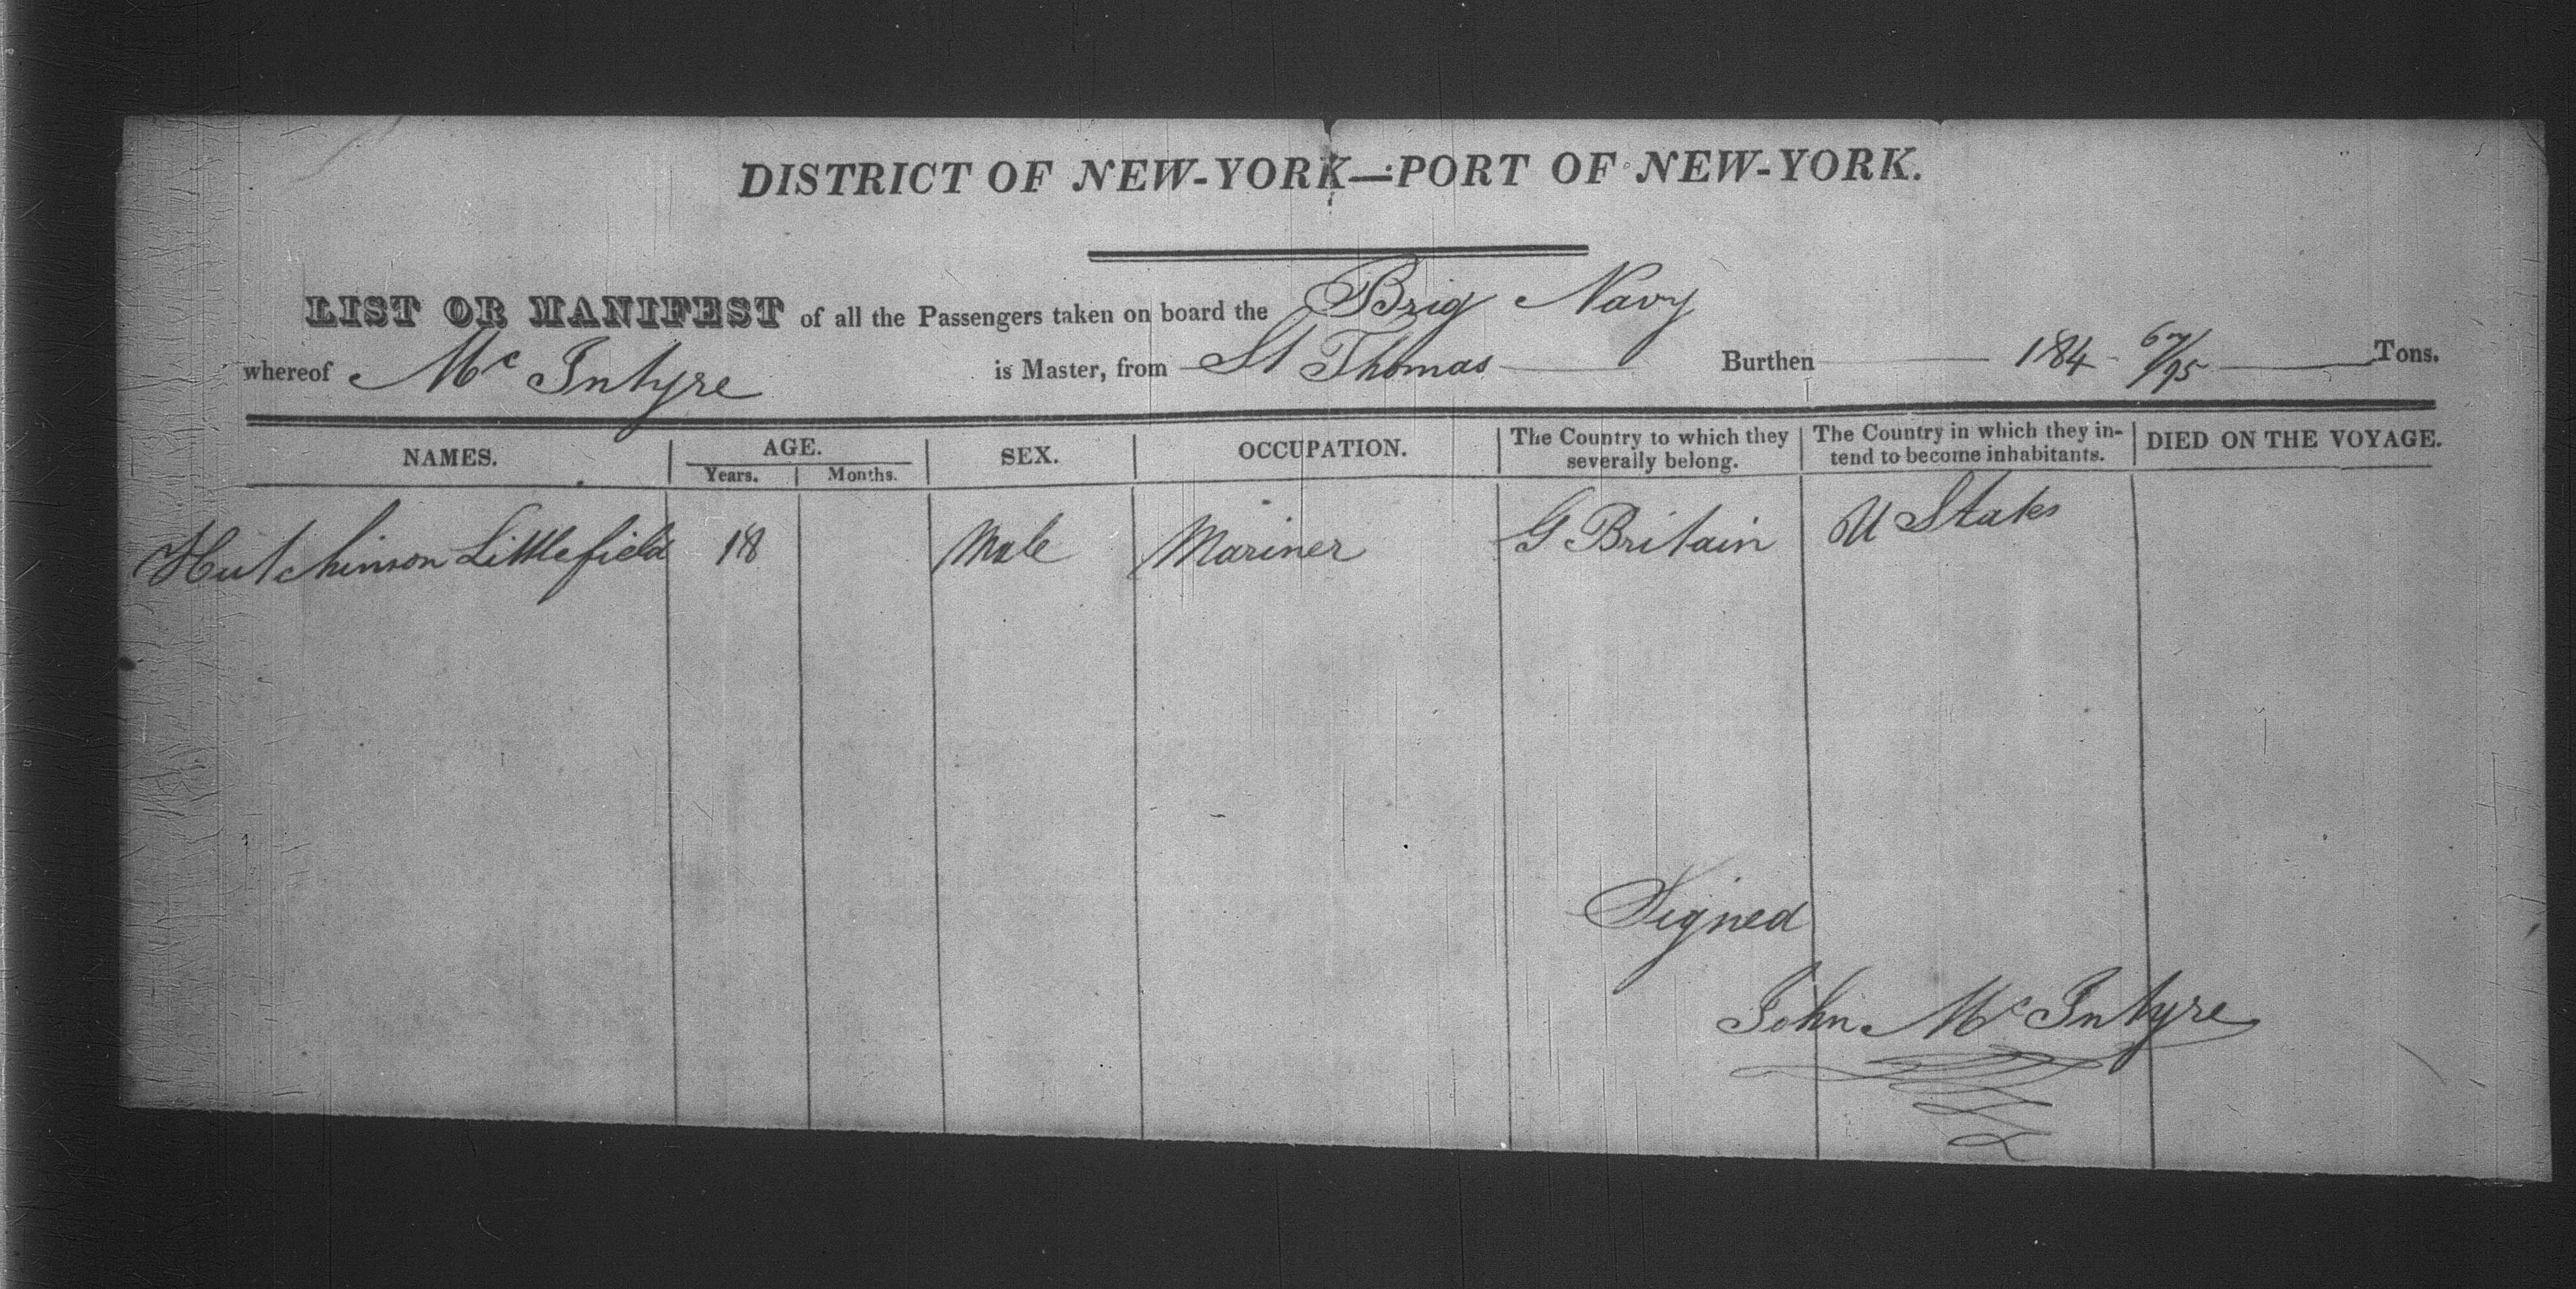 DISTRICT OF NEW-YORK—PORT OF NEW-YORK.
LIST OR MANIFEST of all the Passengers taken on board the Brig Navy
whereof Mc Intyre is Master, from St Thomas Burthen 184 67/95 Tons.
NAMES. AGE. SEX. OCCUPATION. The Country to which they severally belong. The Country in which they intend to become inhabitants. DIED ON THE VOYAGE.
Years. Months.
Hutchinson Littlefield 18 Male Mariner G Britain U States
Signed
John Mc Intyre